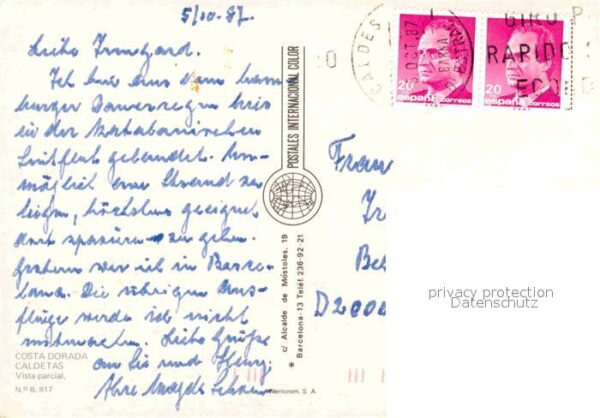 5/10.87.
Liebe Irmgard.
Ich bin aus dem ham-
burger Dauerregen hier
in der
gelandet. Un-
möglich am Strand zu
liegen, höchstens geeignet
dort spazieren zu gehen.
Gestern war ich in Barce-
lona. Die übrigen Aus-
flüge werde ich nicht
mitmachen. Liebe Grüße
an Sie und
Ihre Magda
COSTA DORADA
CALDETAS
Vista parcial.
N.º B. 817
POSTALES INTERNACIONAL COLOR
c/ Alcalde de Móstoles, 19
* Barcelona-13 Telef. 236-92-21
Werbicrom, S. A.
CALDES D'ESTRAC
OCT. 87
GIRO P
RAPIDE
ECO
20
españa correos
20
españa correos
Frau
D2000
privacy protection
Datenschutz